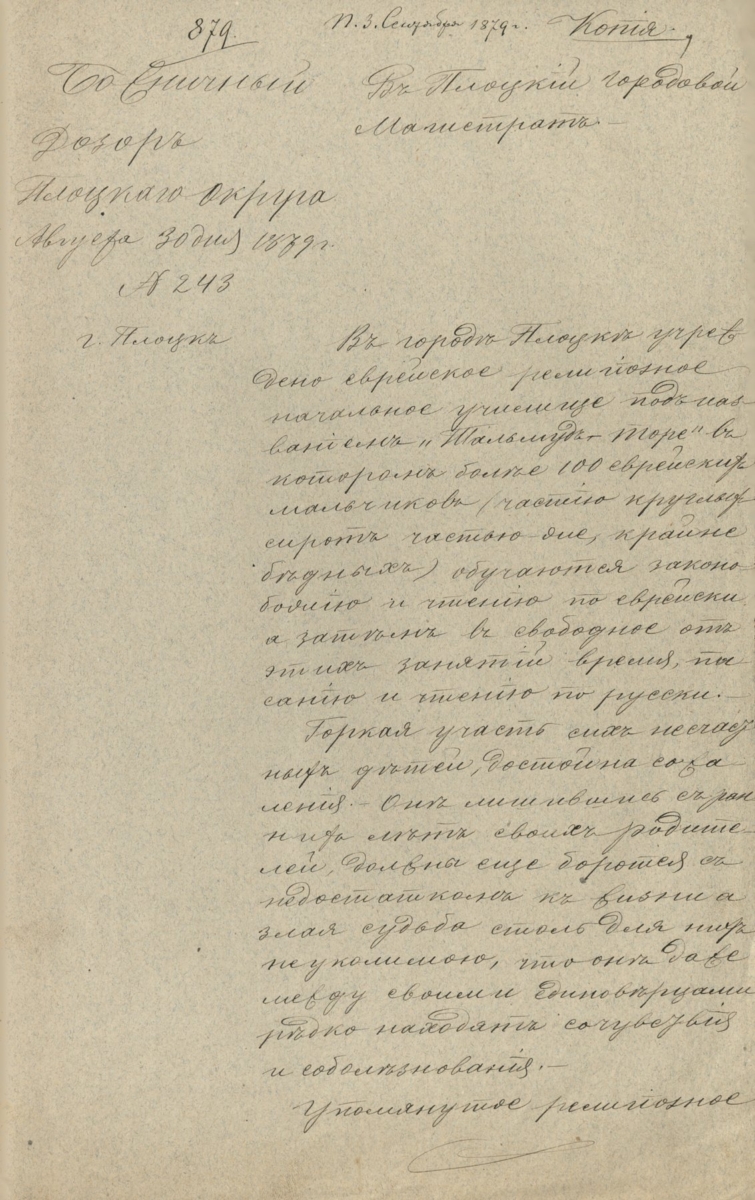 879.
П. 3. Сентября 1879 г.
Копія.
Божничный
Дозоръ
Плоцкаго округа
Августа 30 дня 1879 г.
N 243
г. Плоцкъ
Въ Плоцкій городовой
Магистратъ.—
Въ городѣ Плоцкѣ учреж
дено еврейское религіозное
начальное училище подъ наз-
ваніемъ „Тальмудъ-Торе" въ
которомъ болѣе 100 еврейскихъ
мальчиковъ (частію круглыхъ
сиротъ частью-же, крайне
бѣдныхъ) обучаются законо-
боязнію и чтенію по еврейски
а затѣмъ въ свободное отъ
этихъ занятій время, пи
санію и чтенію по русски.—
Горкая участь сихъ несчаст
ныхъ дѣтей, достойна сожа-
ленія.— Онѣ лишившись съ ран
нихъ лѣтъ своихъ родите-
лей, должны еще боротся съ
недостаткомъ къ жизни а
злая судьба столь для нихъ
неуколимою, что онѣ даже
между своими единовѣрцами
рѣдко находятъ сочувствія
и соболѣзнованія.—
Упомянутое религіозное